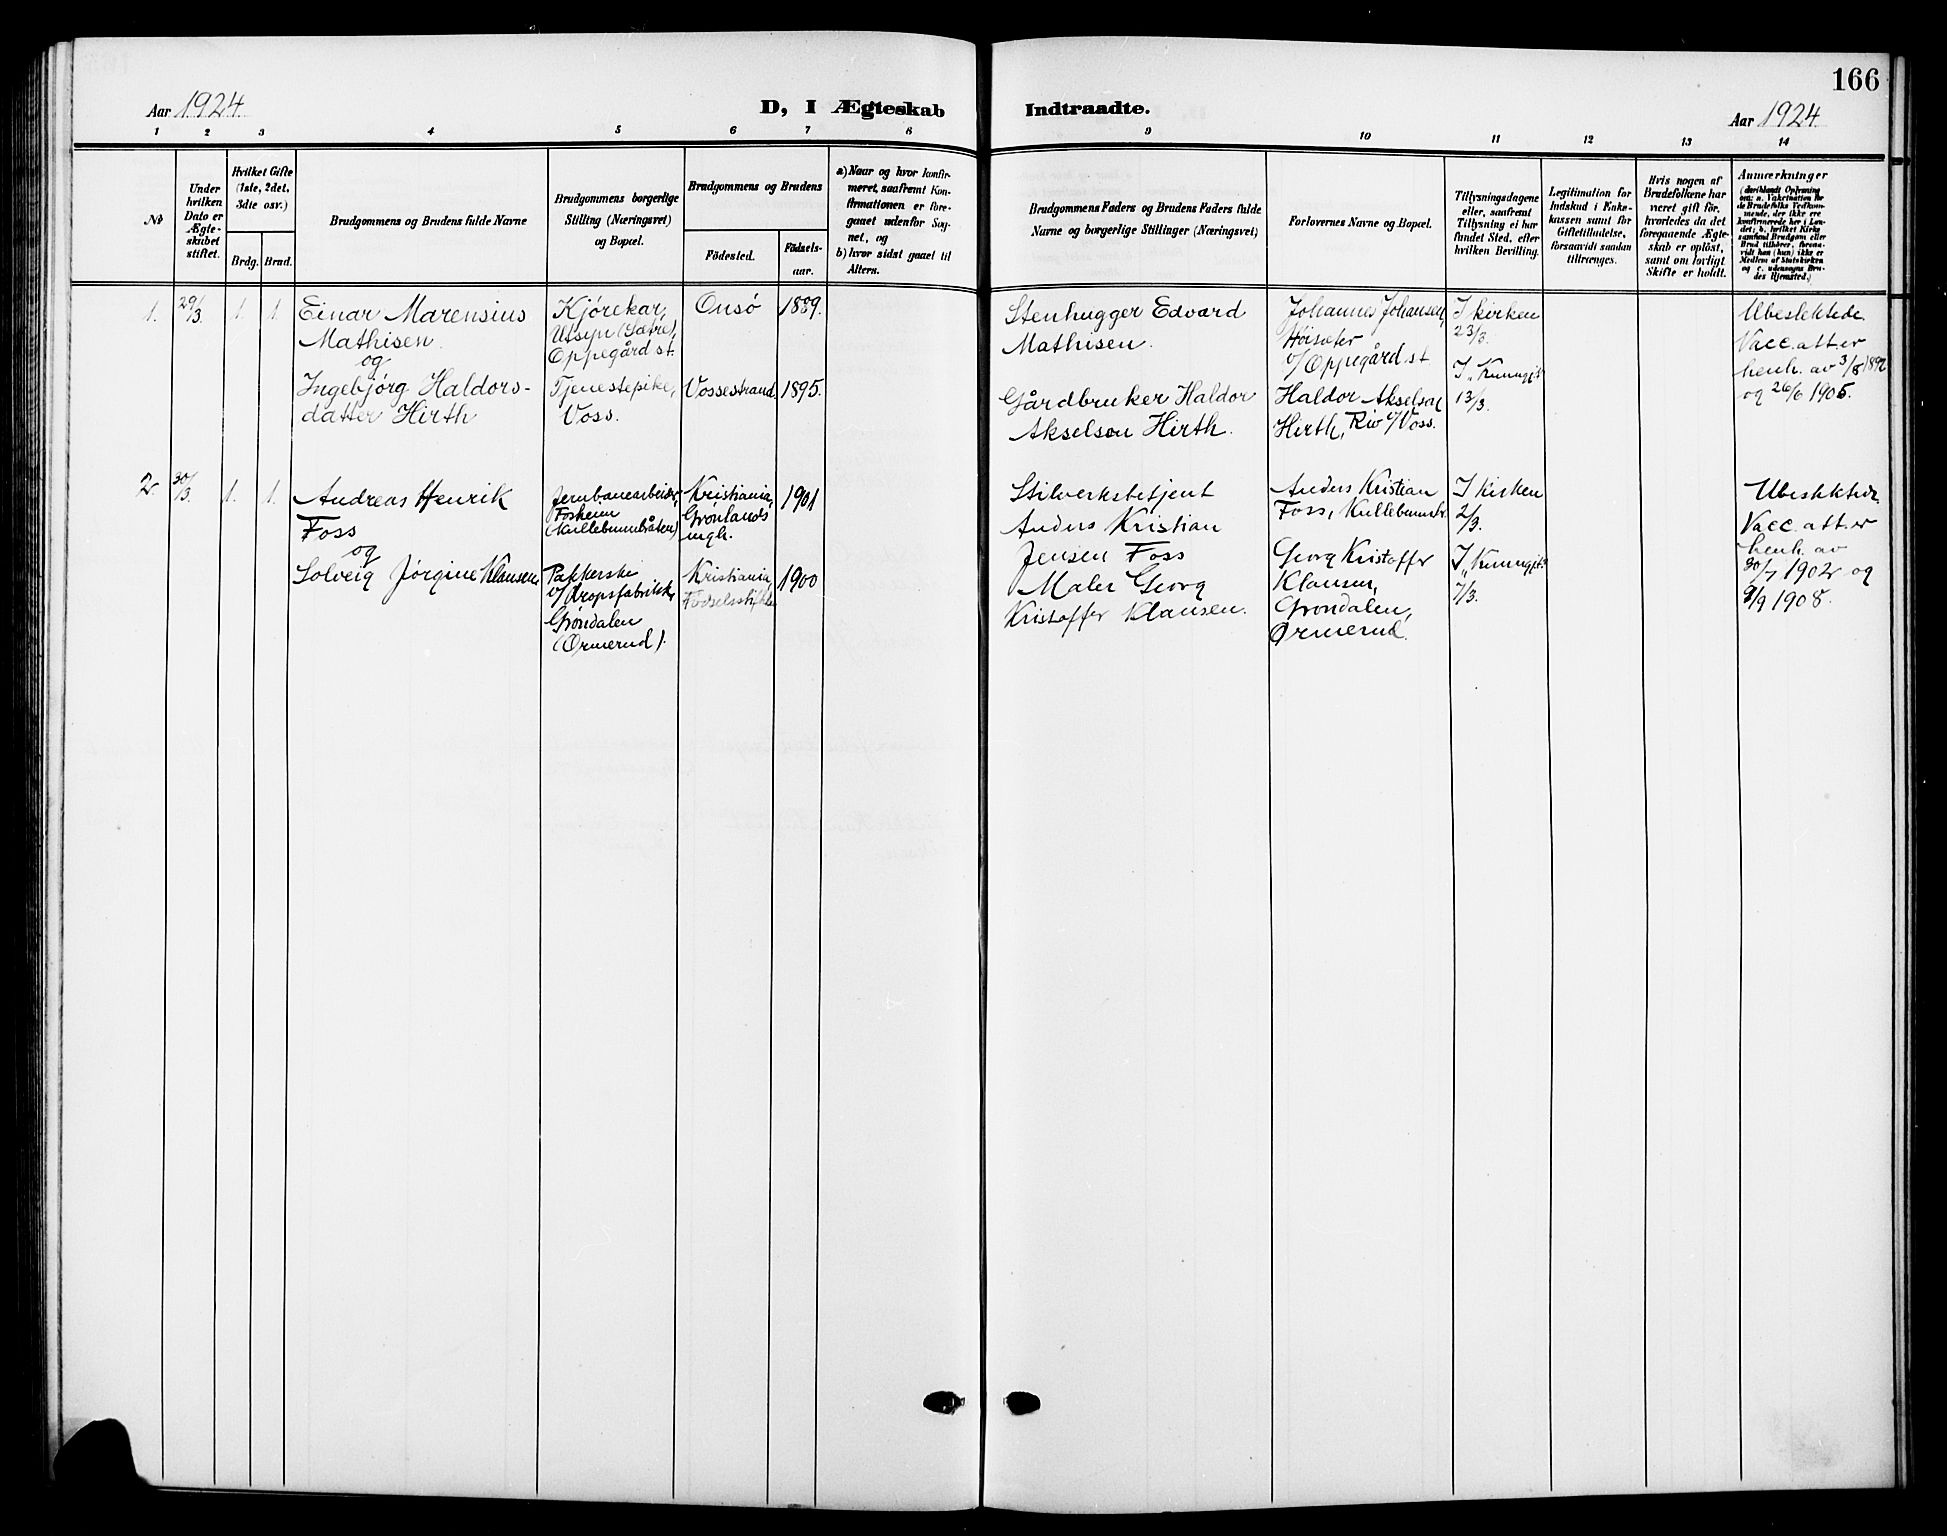 Aar 1924.
D, I Ægteskab
Indtraadte.
166
Aar 1924.
1 2 3 4 5 6 7 8
9 10 11 12 13 14
No
Under
hvilken
Dato er
Ægte-
skabet
stiftet.
Hvilket Gifte
(1ste, 2det,
3die osv.)
Brdg. Brud.
Brudgommens og Brudens fulde Navne
Brudgommens borgerlige
Stilling (Næringsvei)
og Bopæl.
Brudgommens og Brudens
Födested.
Födsels-
aar.
a) Naar og hvor konfir-
meret, saafremt Kon-
firmationen er fore-
gaaet udenfor Sog-
net, og
b) hvor sidst gaaet til
Alters.
Brudgommens Faders og Brudens Faders fulde
Navne og borgerlige Stillinger (Næringsvei)
Forlovernes Navne og Bopæl.
Tillysningsdagene
eller, saafremt
Tillysning ei har
fundet Sted, efter
hvilken Bevilling.
Legitimation for
Indskud i Enke-
kassen samt for
Giftetilladelse,
forsaavidt saadan
tiltrænges.
Hvis nogen af
Brudefolkene har
været gift før,
hvorledes da det
foregaaende Ægte-
skab er opløst,
samt om lovligt
Skifte er holdt.
Anmærkninger
(deriblandt Oplysning
om: a. Vakcination for
de Brudefolks Vedkom-
mende, der ikke ere
konfirmerede her i Lan-
det; b. hvilket Kirke-
samfund Brudgom eller
Brud tilhører, forsaa-
vidt han (hun) ikke er
Medlem af Statskirken
og c. udensogns Bru-
des Hjemsted.)
1. 29/3. 1 1
Einar Marensius
Mathisen
og
Ingebjørg Haldors-
datter Hirth
Kjørekar,
Utsyn (Sætre),
Oppegård st.
Tjenestepike,
Voss.
Onsø 1889.
Vossestrand. 1895.
Stenhugger Edvard
Mathisen.
Gårdbruker Haldor
Akselson Hirth.
Johannes Johansen,
Høisæter
v/ Oppegård st
Haldor Akselson
Hirth, Riv v/Voss.
I kirken
23/3.
I „Kunngjt“
13/3.
Ubeslektede
Vacc. att er
henh. av 3/8 1892
og 26/6 1905.
2. 30/3. 1. 1.
Andreas Henrik
Foss
og
Solveig Jørgine Klausen,
Jernbanearbeider,
Fosheim
(Kullebunnbråten)
Pakkerske
v/ Dropsfabrikk,
Grøndalen
(Ormerud).
Kristiania,
Grønlands
mgh.
1901
Kristiania,
Fødselsstiftelse
1900
Stilverksbetjent
Anders Kristian
Jensen Foss
Maler Georg
Kristoffer Klausen.
Anders Kristian
Foss, Kullebunnbr.
Georg Kristoffer
Klausen,
Grøndalen,
Ormerud.
I Kirken
2/3.
I „Kunngjt“
7/3.
Ubeslektede
Vacc. att er
henh. av
30/7 1902 og
9/9 1908.